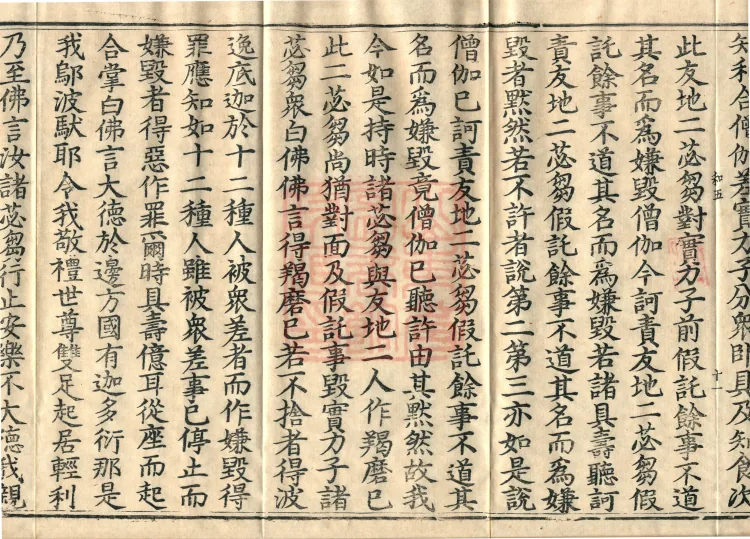 知和合僧伽差實力子分衆臥具及知食次
此友地二苾芻對實力子前假託餘事不道
其名而爲嫌毀僧伽今訶責友地二苾芻假
託餘事不道其名而爲嫌毀若諸具壽聽訶
責友地二苾芻假託餘事不道其名而爲嫌
毀者默然若不許者說第二第三亦如是說
僧伽已訶責友地二苾芻假託餘事不道其
名而爲嫌毀竟僧伽已聽許由其默然故我
今如是持時諸苾芻與友地二人作羯磨已
此二苾芻尚猶對面及假託事毀實力子諸
苾芻衆白佛佛言得羯磨已若不捨者得波
逸底迦於十二種人被衆差者而作嫌毀得
罪應知如十二種人雖被衆差事已停止而
嫌毀者得惡作罪爾時具壽億耳從座而起
合掌白佛言大德於邊方國有迦多衍那是
我鄔波馱耶令我敬禮世尊雙足起居輕利
乃至佛言汝諸苾芻行止安樂不大德我親
和五
十一